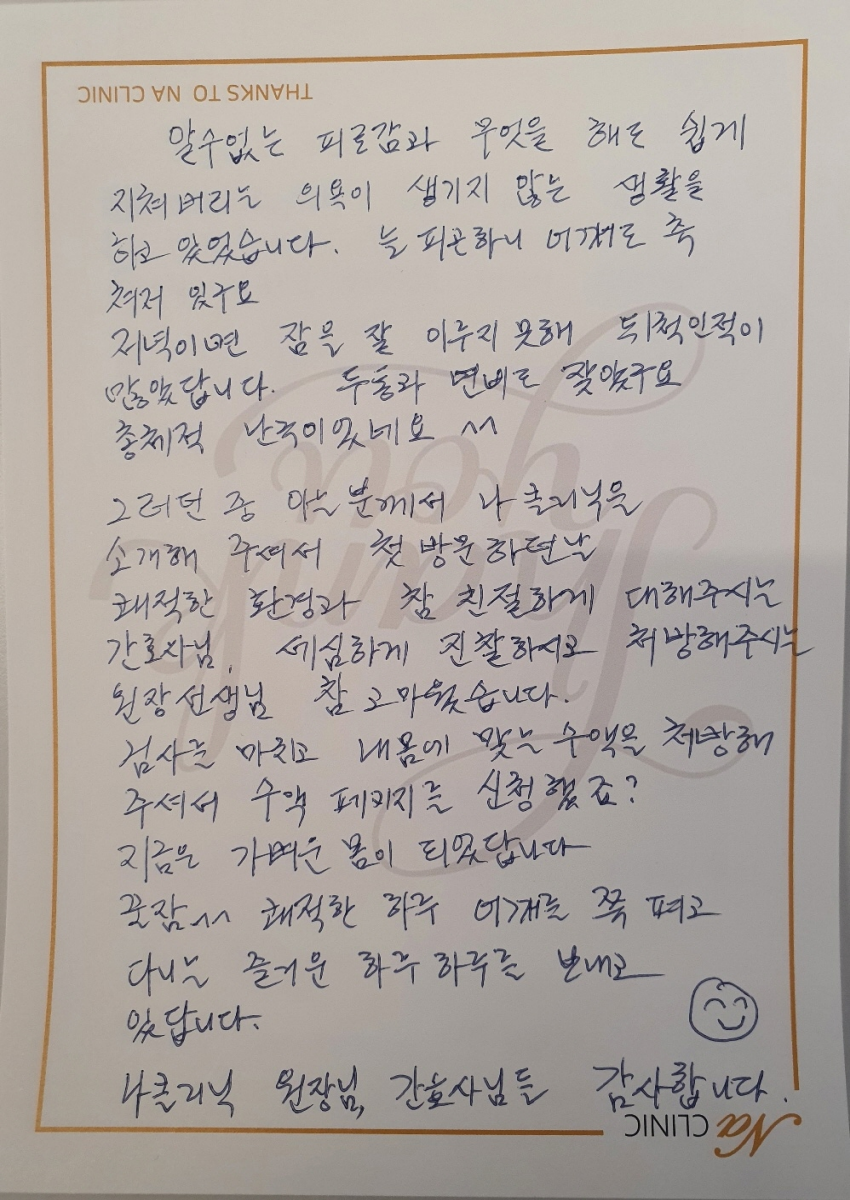 THANKS TO NA CLINIC
알수없는 피로감과 무엇을 해도 쉽게
지쳐버리는 의욕이 생기지 않는 생활을
하고 있었습니다. 늘 피곤하니 어깨도 축
쳐저 있구요
저녁이면 잠을 잘 이루지 못해 뒤척인적이
많았답니다. 두통과 변비도 잦았구요
총체적 난국이었네요 ^^
그러던 중 아는분께서 나클리닉을
소개해 주셔서 첫 방문하던날
쾌적한 환경과 참 친절하게 대해주시는
간호사님, 세심하게 진찰하시고 처방해주시는
원장선생님 참 고마웠습니다.
검사를 마치고 내몸에 맞는 수액을 처방해
주셔서 수액 패키지를 신청했죠?
지금은 가벼운 몸이 되었답니다
꿀잠^^ 쾌적한 하루 어깨를 쭉 펴고
다니는 즐거운 하루하루를 보내고
있답니다.
나클리닉 원장님, 간호사님들 감사합니다.
Thank you
Na CLINIC